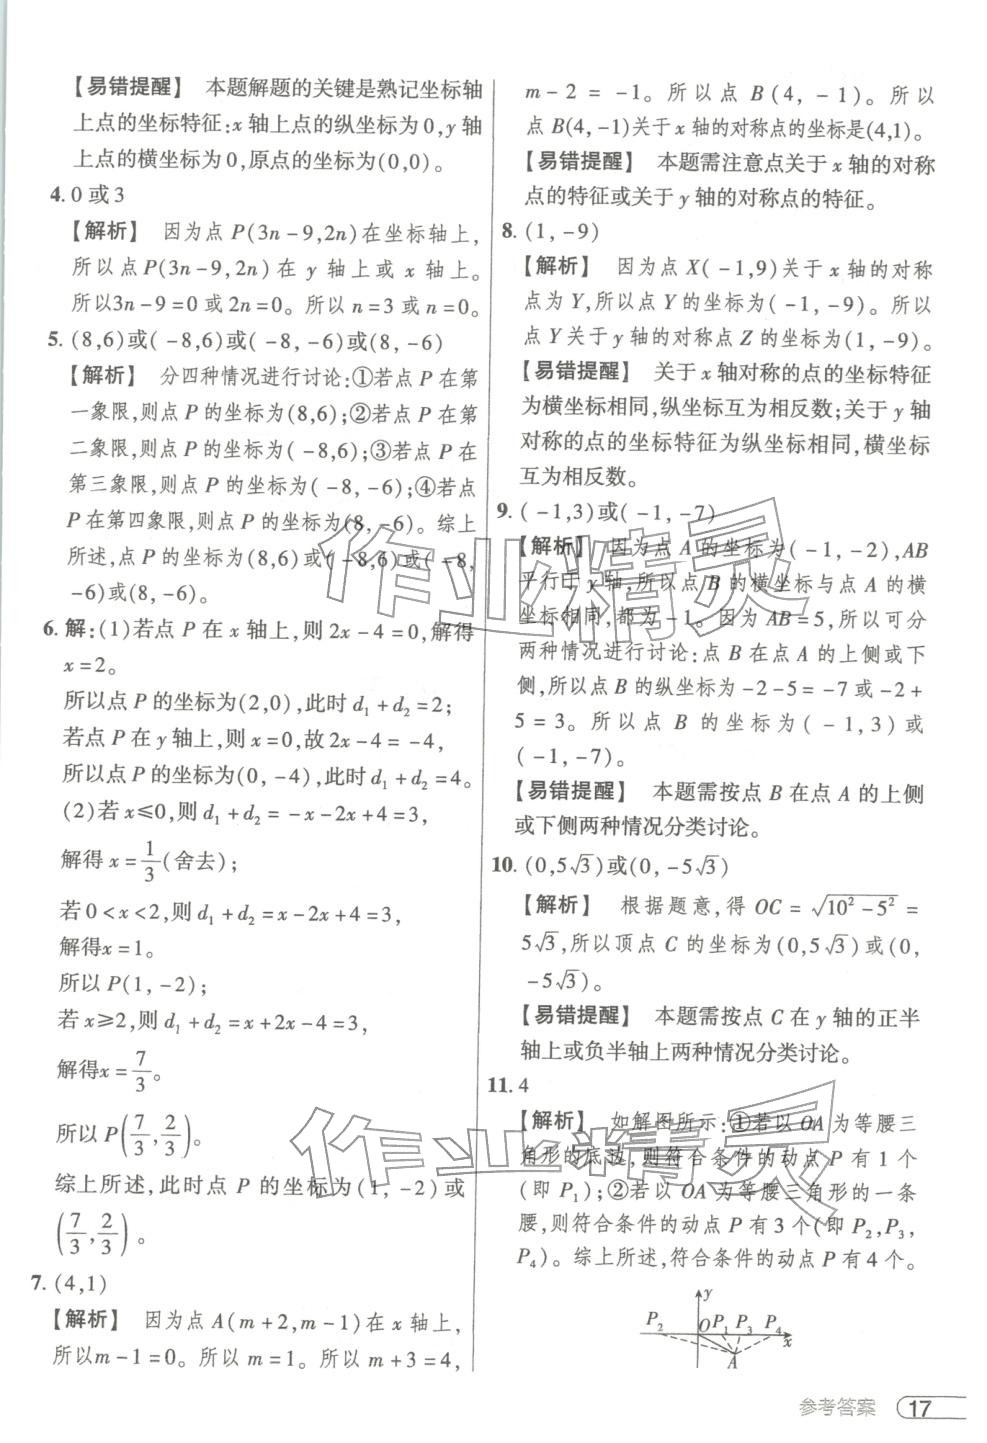 【易错提醒】 本题解题的关键是熟记坐标轴
上点的坐标特征:x 轴上点的纵坐标为 0,y 轴
上点的横坐标为 0,原点的坐标为(0,0)。
4. 0 或 3
【解析】 因为点 P(3n-9,2n)在坐标轴上,
所以点P(3n-9,2n)在 y 轴上或 x 轴上。
所以3n-9=0 或 2n=0。所以 n=3 或 n=0。
5. (8,6)或(-8,6)或(-8,-6)或(8,-6)
【解析】 分四种情况进行讨论:①若点 P 在第
一象限,则点 P 的坐标为(8,6);②若点 P 在第
二象限,则点 P 的坐标为(-8,6);③若点 P 在
第三象限,则点 P 的坐标为(-8,-6);④若点
P 在第四象限,则点 P 的坐标为(8,-6)。综上
所述,点 P 的坐标为(8,6)或(-8,6)或(-8,
-6)或(8,-6)。
6. 解:(1)若点 P 在 x 轴上,则 2x-4=0,解得
x=2。
所以点 P 的坐标为(2,0),此时 d₁+d₂=2;
若点 P 在 y 轴上,则 x=0,故 2x-4=-4,
所以点 P 的坐标为(0,-4),此时 d₁+d₂=4。
(2)若 x≤0,则 d₁+d₂=-x-2x+4=3,
解得 x=1/3(舍去);
若 0<x<2,则 d₁+d₂=x-2x+4=3,
解得x=1。
所以 P(1,-2);
若 x≥2,则 d₁+d₂=x+2x-4=3,
解得x=7/3。
所以 P(7/3,2/3)。
综上所述,此时点 P 的坐标为(1,-2)或
(7/3,2/3)。
7. (4,1)
【解析】 因为点 A(m+2,m-1)在 x 轴上,
所以m-1=0。所以 m=1。所以 m+3=4,
m-2=-1。所以点 B(4,-1)。所以
点 B(4,-1)关于 x 轴的对称点的坐标是(4,1)。
【易错提醒】 本题需注意点关于 x 轴的对称
点的特征或关于 y 轴的对称点的特征。
8. (1,-9)
【解析】 因为点 X(-1,9)关于 x 轴的对称
点为 Y,所以点 Y 的坐标为(-1,-9)。所以
点 Y关于 y轴的对称点 Z 的坐标为(1,-9)。
【易错提醒】 关于 x 轴对称的点的坐标特征
为横坐标相同,纵坐标互为相反数;关于 y 轴
对称的点的坐标特征为纵坐标相同,横坐标
互为相反数。
9. (-1,3)或(-1,-7)
【解析】 因为点 A 的坐标为(-1,-2),AB
平行于 y 轴,所以点 B 的横坐标与点 A 的横
坐标相同,都为-1。因为 AB=5,所以可分
两种情况进行讨论:点 B 在点 A 的上侧或下
侧,所以点 B 的纵坐标为-2-5=-7 或-2+
5=3。所以点 B 的坐标为(-1,3)或
(-1,-7)。
【易错提醒】 本题需按点 B 在点 A 的上侧
或下侧两种情况分类讨论。
10. (0,5√3)或(0,-5√3)
【解析】 根据题意,得 OC=√(10²-5²)=
5√3,所以顶点 C 的坐标为(0,5√3)或(0,
-5√3)。
【易错提醒】 本题需按点 C 在 y 轴的正半
轴上或负半轴上两种情况分类讨论。
11. 4
【解析】 如解图所示:①若以 OA 为等腰三
角形的底边,则符合条件的动点 P 有 1 个
(即 P₁);②若以 OA 为等腰三角形的一条
腰,则符合条件的动点 P 有 3 个(即 P₂,P₃,
P₄)。综上所述,符合条件的动点 P 有 4 个。
y
P₂ O P₁ P₃ P₄ x
A
作业精灵
作业精灵
参考答案 17